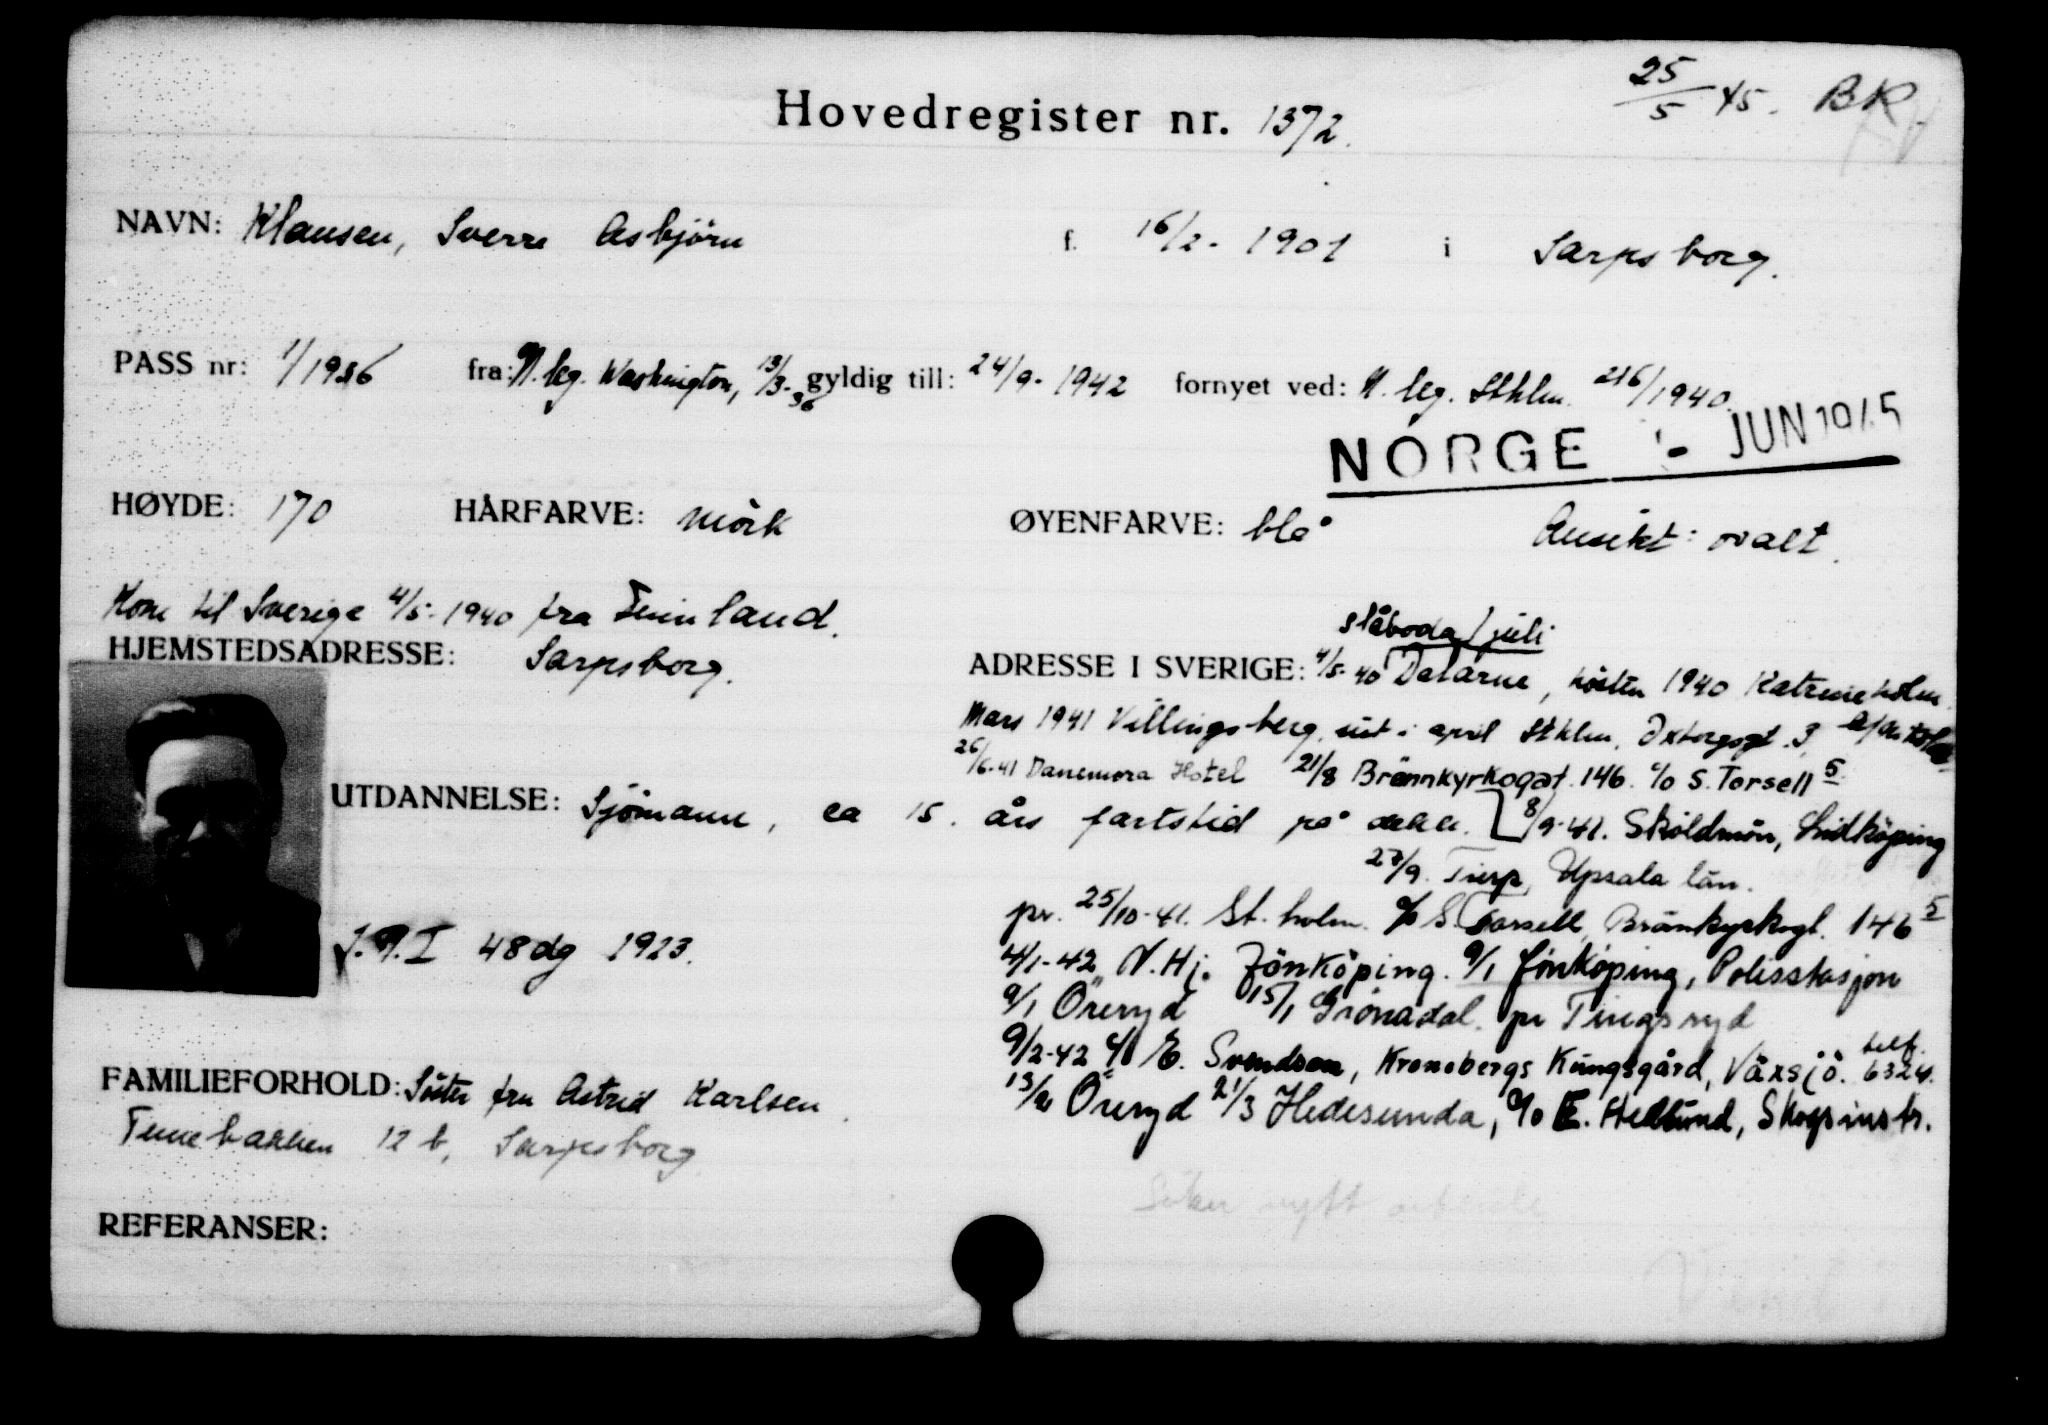 25/5 45. BK
Hovedregister nr. 1372.
NAVN: Klausen, Sverre Asbjörn f. 16/2- 1901 i Sarpsborg.
PASS nr: 1/1936 fra: N. leg. Washington, 13/3-36 gyldig till: 24/9- 1942 fornyet ved: N. leg. Sthlm. 216/1940.
NORGE - JUN 1945
HØYDE: 170 HÅRFARVE: mörk ØYENFARVE: blå Ansikt: ovalt.
Kom til Sverige 4/5-1940 fra Finnland.
slåboda / juli
HJEMSTEDSADRESSE: Sarpsborg. ADRESSE I SVERIGE: 4/5-40 Dalarne, hösten 1940 Katrineholm.
Mars 1941 Villingsberg, ut i april Sthlm, Oxtorgsgt. 3,
26/6-41 Danemora Hotel 21/8 Brännkyrkogat. 146. c/o S. Torsell 5
UTDANNELSE: Sjömann, ca 15. års fartstid på dekk. 8/9-41. Sköldmön, Lidköping
27/9. Tierp, Upsala län.
pr. 25/10-41. St.holm. c/o S. Torsell, Bränkyrkogt. 146 5
I.R.I 48dg 1923.
4/1-42 N.Hj. Jönköping. 9/1 Jönköping, Polisstasjon
9/1 Öreryd 15/1 Grönadal. pr Tingsryd
9/2-42 c/o E. Svendsen, Kronobergs Kungsgård, Växsjö. telf. 6324.
FAMILIEFORHOLD: Söster fru Astrid Karlsen.
13/2 Öreryd 21/3 Hedesunda, c/o E. Hedlund, Skogsinstr.
Tunebakken 12 b, Sarpsborg
Söker nytt arbeide
REFERANSER: